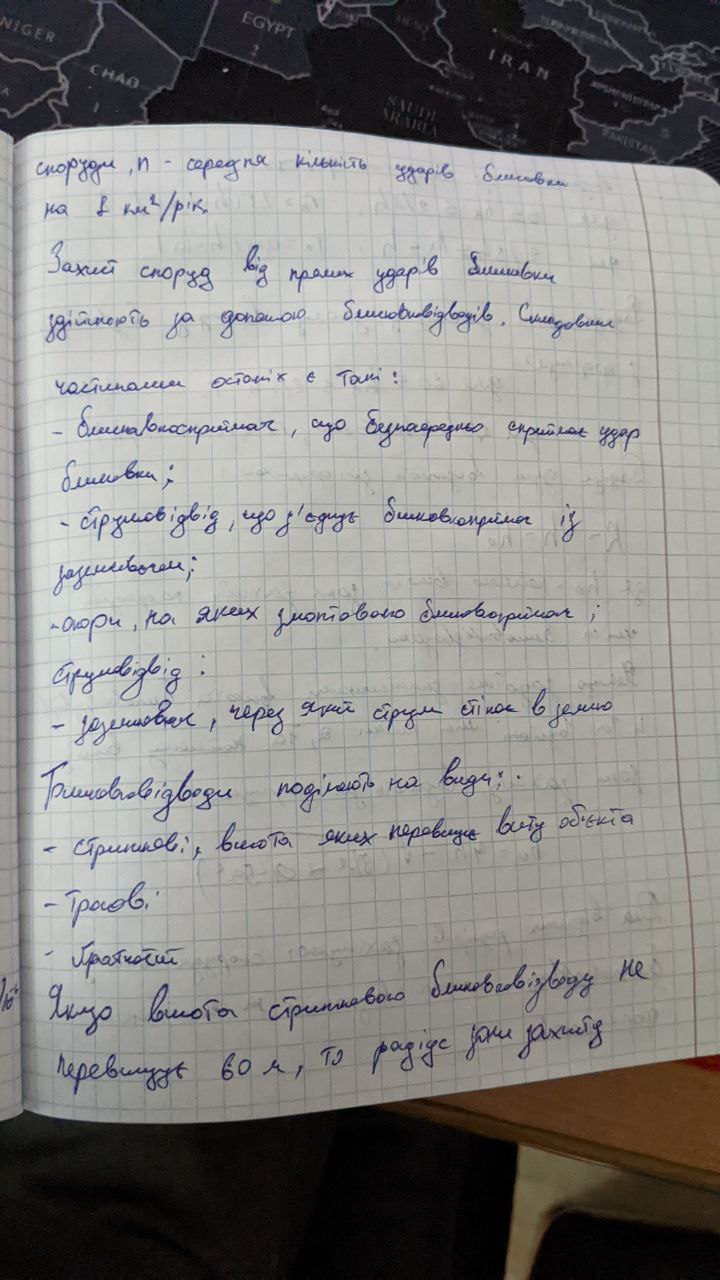 NIGER
CHAD
EGYPT
SAUDI
ARABIA
IRAN
AFGHANISTAN
PAKISTAN
споруди, n - середня кількість ударів блискавки
на 1 км²/рік.
Захист споруд від прямих ударів блискавки
здійнюють за допомою блискавковідводів. Складовими
частинами останіх є такі:
- блискавкосприймач, що безпосередньо сприймає удар
блискавки;
- струмовідвід, що з'єднує блискавкоприймач із
заземлювачем;
- опори, на яких змонтовано блискавкоприймач;
струмовідвід:
- заземлювач, через який струм стікає в землю
Блискавковідводи поділяють на види:
- стрижневі, висота яких перевищує висоту об'єкта
- Тросові
Якщо висота стрижневого блискавковідводу не
перевищує 60 м, то радіус зони захисту